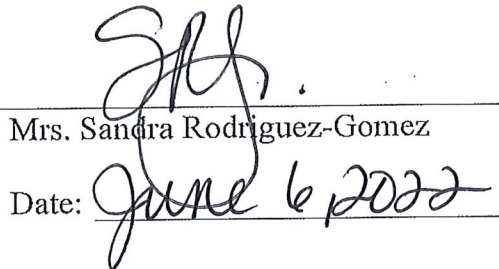 Mrs. Sandra Rodriguez-Gomez
Date: June 6, 2022